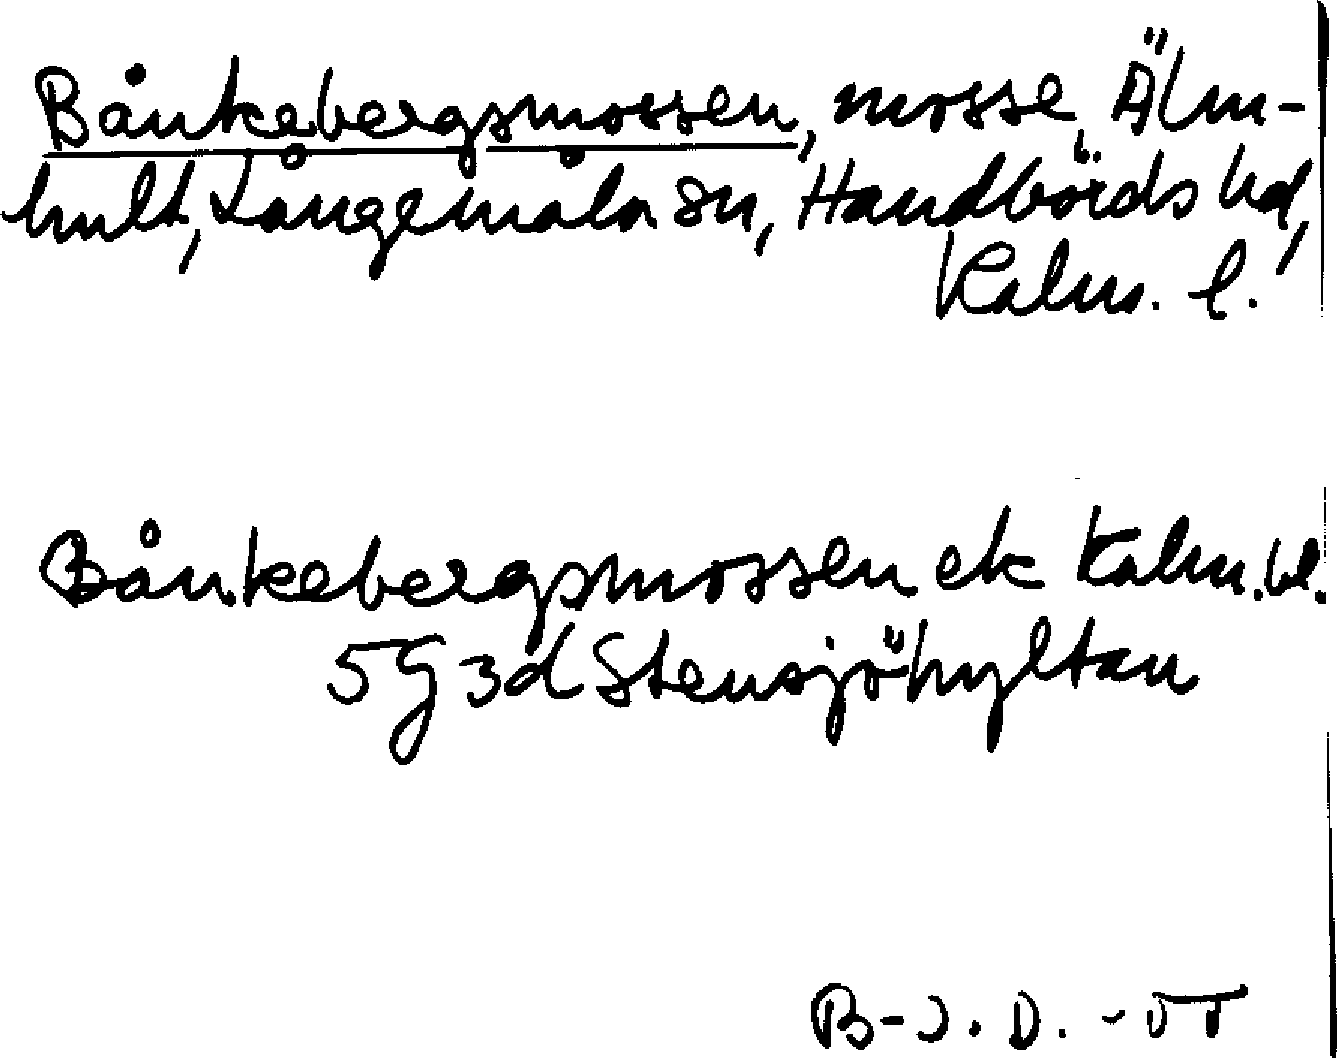 Bånkebergsmossen, mosse, Älm-
hult, Långemåla sn, Handbörds hd,
Kalm. l.
Bånkebergsmossen ek Kalm. bl.
5G 3d Stensjöhyltan
B-J. D. -